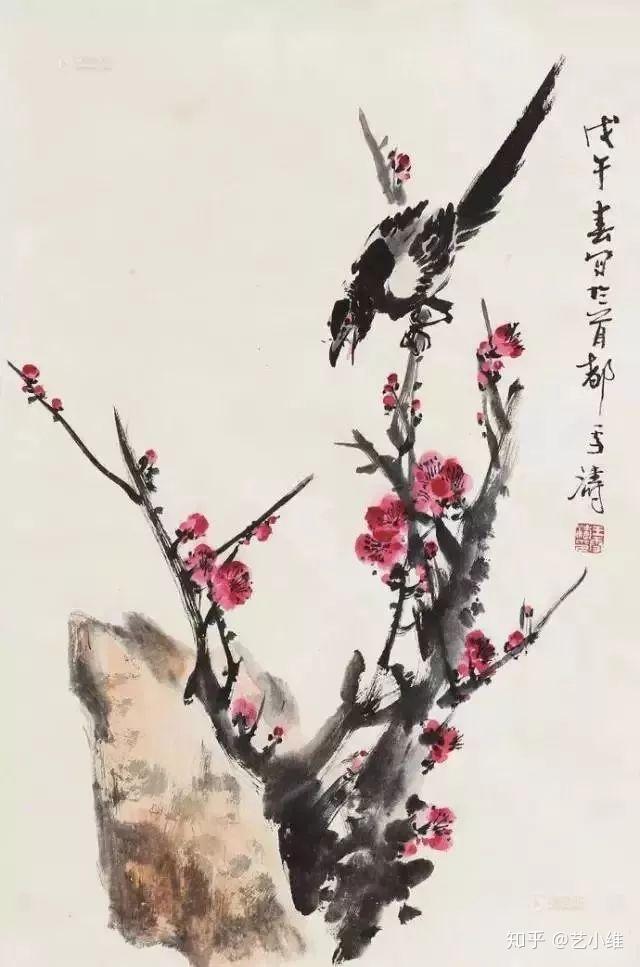 戊午春写于首都雪涛
知乎 @艺小维